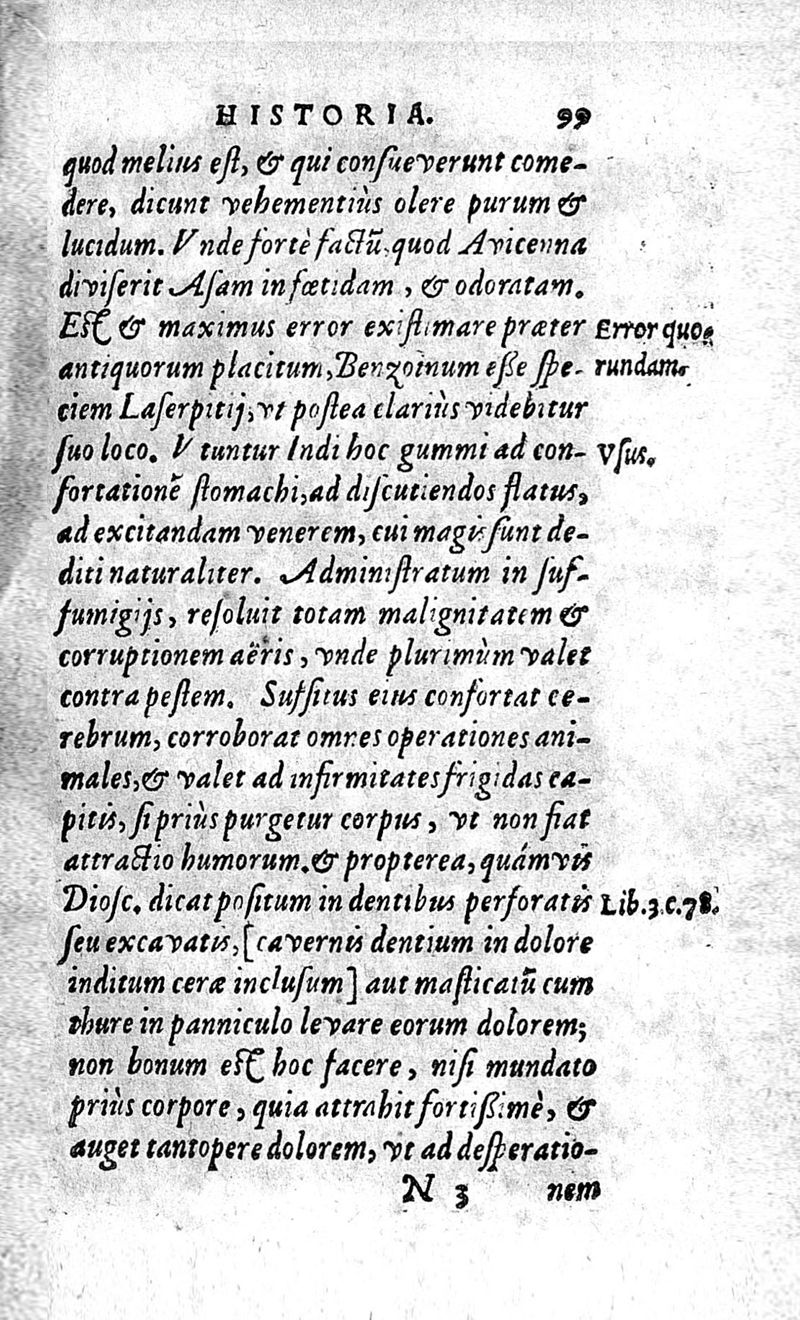 HISTORIA. 99
quod melius est, & qui consueverunt come-
dere, dicunt vehementiùs olere purum &
lucidum. Vnde fortè factū quod Avicenna
diviserit Asam in fœtidam, & odoratam.
Est & maximus error existimare præter
Error quo-
antiquorum placitum, Benzoinum esse spe-
rundam.
ciem Laserpitij, vt postea clariùs videbitur
suo loco. Vtuntur Indi hoc gummi ad con-
Vsus.
fortationē stomachi, ad discutiendos flatus,
ad excitandam venerem, cui magis sunt de-
diti naturaliter. Administratum in suf-
fumigijs, resoluit totam malignitatem &
corruptionem aëris, vnde plurimùm valet
contra pestem. Suffitus eius confortat ce-
rebrum, corroborat omnes operationes ani-
males, & valet ad infirmitates frigidas ca-
pitis, si priùs purgetur corpus, vt non fiat
attractio humorum. & propterea, quámvis
Diosc. dicat positum in dentibus perforatis
Lib.3.c.78.
seu excavatis, [cavernis dentium in dolore
inditum ceræ inclusum] aut masticatū cum
thure in panniculo levare eorum dolorem;
non bonum est hoc facere, nisi mundato
priùs corpore, quia attrahit fortissimè, &
auget tantopere dolorem, vt ad desperatio-
N 3 nem